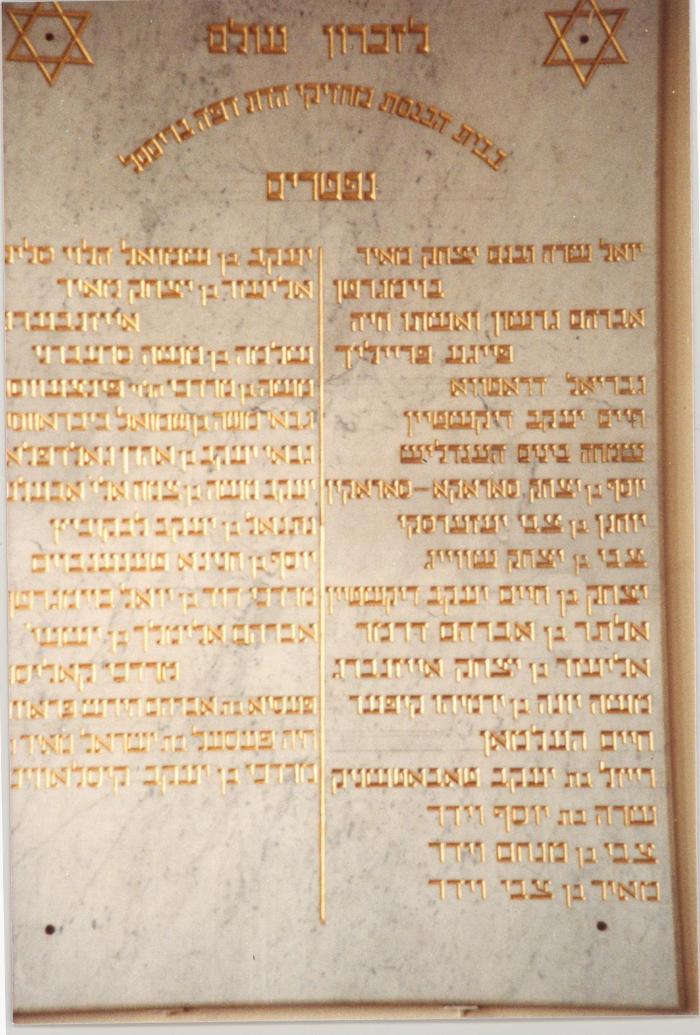 לזכרון עולם
בבית הכנסת מחזיקי הדת דפה בריסל
נפטרים
יואל שרה ובנם יצחק מאיר
בוימגרטן
אברהם גרשון ואשתו חיה
פייגע פרייליך
גבריאל דראטווא
חיים יעקב דיקשטיין
שמחה בינים הענדליש
יוסף בן יצחק סאראקא-סאראקין
יוחנן בן צבי יעזערסקי
צבי בן יצחק שווייג
יצחק בן חיים יעקב דיקשטיין
אלתר בן אברהם דרמר
אליעזר בן יצחק אייזנברג
משה יונה בן ירמיהו קיפער
חיים העלמאן
רייזל בת יעקב טאבאטשניק
שרה בת יוסף וידר
צבי בן מנחם וידר
מאיר בן צבי וידר
יעקב בן שמואל הלוי
אליעזר בן יצחק מאיר
אייזנבערג
שלמה בן משה סרעברני
משה בן מרדכי הלוי
גבאי משה בן שמואל
גבאי יעקב בן אהרן
יעקב משה בן צמח אלי
נתנאל בן יעקב לבקוביץ
יוסף בן חינא טענענבוים
מרדכי דוד בן יואל
אברהם אלימלך בן
מרדכי קאליס
פעסיא בת אברהם הירש
חיה פעסעל בת ישראל מאיר
מרדכי בן יעקב